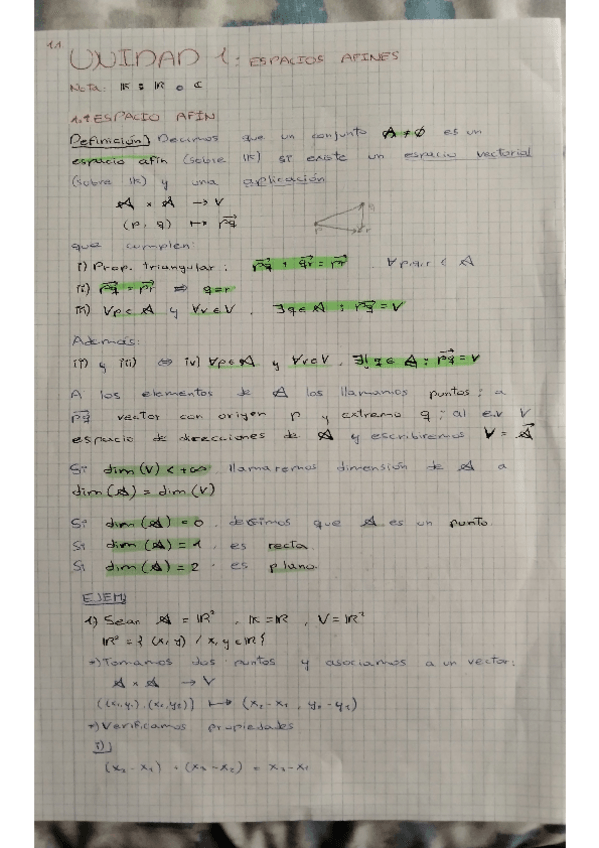 1.1
UNIDAD 1: ESPACIOS AFINES
Nota: 𝕂 = ℝ o ℂ
1.1 ESPACIO AFÍN
Definición) Decimos que un conjunto 𝔸 ≠ ∅ es un
espacio afín (sobre 𝕂) si existe un espacio vectorial
(sobre 𝕂) y una aplicación
𝔸 × 𝔸 → V
(p, q) ↦ p͞q⃗
que cumplen:
i) Prop. triangular: pq⃗ + qr⃗ = pr⃗ ∀p,q,r ∈ 𝔸
ii) pq⃗ = pr⃗ ⇒ q=r
iii) ∀p∈𝔸 y ∀v∈V, ∃q∈𝔸 : pq⃗ = V
Además:
ii) y iii) ⇔ iv) ∀p∈𝔸 y ∀v∈V, ∃!q∈𝔸 : pq⃗ = V
A los elementos de 𝔸 los llamamos puntos; a
pq⃗ vector con origen p y extremo q; al e.v V
espacio de direcciones de 𝔸 y escribiremos V = 𝔸⃗
Si dim(V) < +∞ llamaremos dimensión de 𝔸 a
dim(𝔸) = dim(V)
Si dim(𝔸) = 0, decimos que 𝔸 es un punto.
Si dim(𝔸) = 1, es recta.
Si dim(𝔸) = 2, es plano.
EJEM:
1) Sean 𝔸 = ℝ², 𝕂 = ℝ, V = ℝ²
ℝ² = {(x, y) / x, y ∈ ℝ}
→) Tomamos dos puntos y asociamos a un vector:
𝔸 × 𝔸 → V
((x₁,y₁),(x₂,y₂)) ↦ (x₂-x₁, y₂-y₁)
→) Verificamos propiedades
i)
(x₂-x₁) + (x₃-x₂) = x₃-x₁